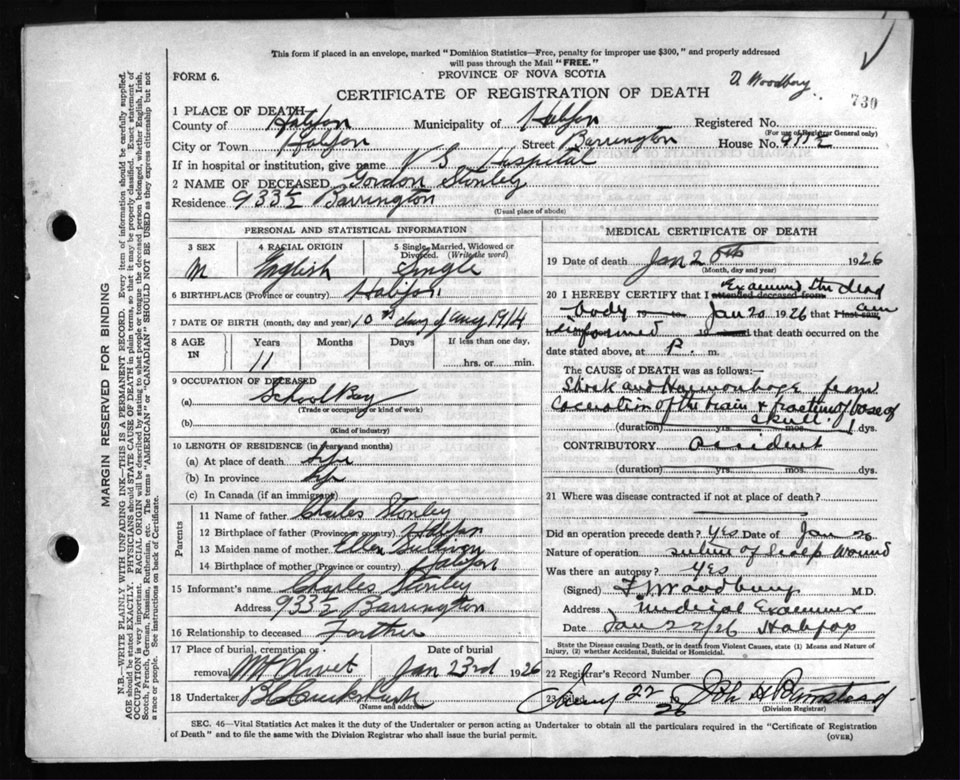 This form if placed in an envelope, marked "Dominion Statistics—Free, penalty for improper use $300," and properly addressed
will pass through the Mail "FREE."
FORM 6.
PROVINCE OF NOVA SCOTIA
D. Woodbury
730
CERTIFICATE OF REGISTRATION OF DEATH
1 PLACE OF DEATH
County of Halifax Municipality of Halifax Registered No.
(For use of Registrar General only)
City or Town Halifax Street Barrington House No.
If in hospital or institution, give name V G Hospital
2 NAME OF DECEASED Gordon Stonley
Residence 933½ Barrington
(Usual place of abode)
PERSONAL AND STATISTICAL INFORMATION
3 SEX 4 RACIAL ORIGIN 5 Single, Married, Widowed or Divorced. (Write the word)
M English Single
6 BIRTHPLACE (Province or country) Halifax
7 DATE OF BIRTH (month, day and year) 10th day of Aug 1914
8 AGE IN Years Months Days If less than one day,
11 hrs. or min.
9 OCCUPATION OF DECEASED
(a) School Boy
(Trade or occupation or kind of work)
(b)
(Kind of industry)
10 LENGTH OF RESIDENCE (in years and months)
(a) At place of death Life
(b) In province Life
(c) In Canada (if an immigrant)
Parents
11 Name of father Charles Stonley
12 Birthplace of father (Province or country) Halifax
13 Maiden name of mother Ellen
14 Birthplace of mother (Province or country) Halifax
15 Informant's name Charles Stonley
Address 933½ Barrington
16 Relationship to deceased Farther
17 Place of burial, cremation or removal Date of burial
Mt Olivet Jan 23rd 1926
18 Undertaker
(Name and address)
MEDICAL CERTIFICATE OF DEATH
19 Date of death Jan 20th 1926
(Month, day and year)
20 I HEREBY CERTIFY that I attended deceased from Examined the dead
body to Jan 20 1926 that I last saw am
informed 19 and that death occurred on the
date stated above, at P. m.
The CAUSE of DEATH was as follows:
Shock and Haemorrhage from
Laceration of the brain & fracture of base of
skull.
(duration) yrs. mos. 1 dys.
CONTRIBUTORY accident
(duration) yrs. mos. dys.
21 Where was disease contracted if not at place of death?
Did an operation precede death? Yes Date of Jan 20
Nature of operation suture of Scalp Wound
Was there an autopsy? Yes
(Signed) F. Woodbury M.D.
Address Medical Examiner
Date Jan 22/26 Halifax
State the Disease causing Death, or in death from Violent Causes, state (1) Means and Nature of
Injury, (2) whether Accidental, Suicidal or Homicidal.
22 Registrar's Record Number
23 22 26 John H
(Division Registrar)
SEC. 46—Vital Statistics Act makes it the duty of the Undertaker or person acting as Undertaker to obtain all the particulars required in the "Certificate of Registration
of Death" and to file the same with the Division Registrar who shall issue the burial permit.
(OVER)
MARGIN RESERVED FOR BINDING
N.B.—WRITE PLAINLY WITH UNFADING INK—THIS IS A PERMANENT RECORD. Every item of information should be carefully supplied.
AGE should be stated EXACTLY. PHYSICIANS should STATE CAUSE OF DEATH in plain terms, so that it may be properly classified. Exact statement of
OCCUPATION is very important. RACIAL ORIGIN will be described by stating to what people or tongue the deceased person belonged, whether English, Irish,
Scotch, French, German, Russian, Ruthenian, etc. The terms "AMERICAN" or "CANADIAN" SHOULD NOT BE USED as they express citizenship but not
a race or people. See instructions on back of Certificate.